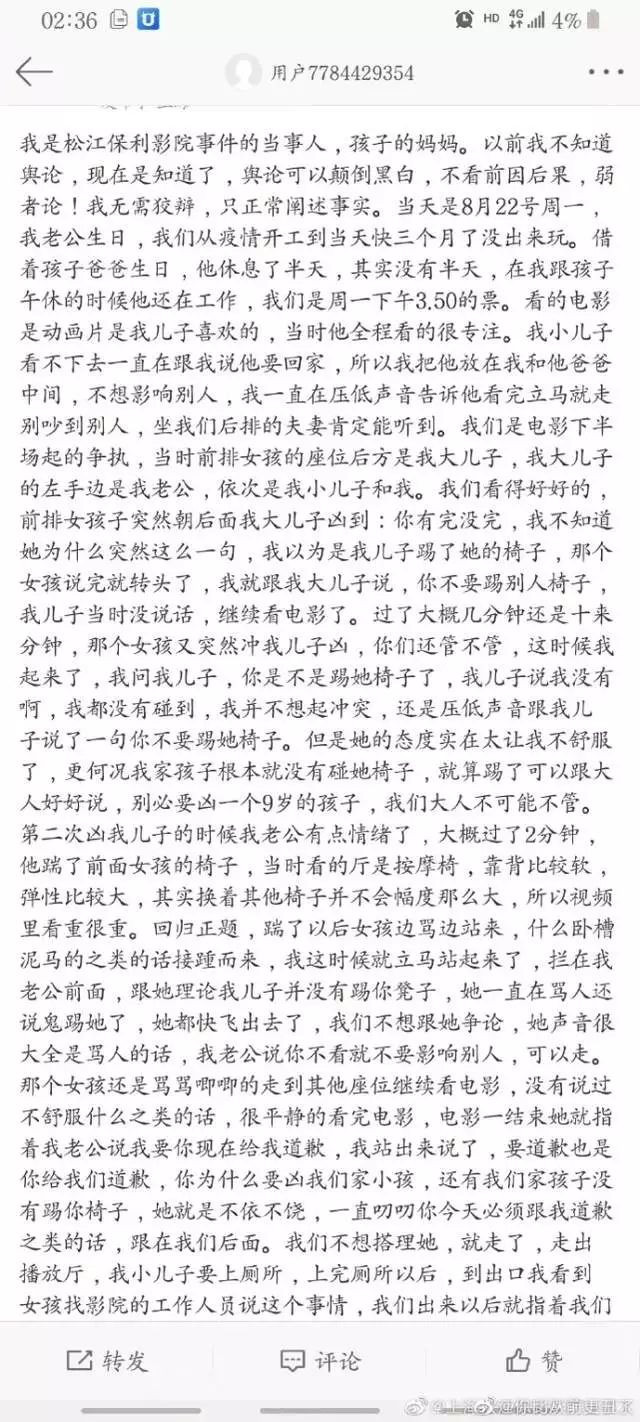 02:36
HD 4G 4%
用户7784429354
我是松江保利影院事件的当事人，孩子的妈妈。以前我不知道
舆论，现在是知道了，舆论可以颠倒黑白，不看前因后果，弱
者论！我无需狡辩，只正常阐述事实。当天是8月22号周一，
我老公生日，我们从疫情开工到当天快三个月了没出来玩。借
着孩子爸爸生日，他休息了半天，其实没有半天，在我跟孩子
午休的时候他还在工作，我们是周一下午3.50的票。看的电影
是动画片是我儿子喜欢的，当时他全程看的很专注。我小儿子
看不下去一直在跟我说他要回家，所以我把他放在我和他爸爸
中间，不想影响别人，我一直在压低声音告诉他看完立马就走
别吵到别人，坐我们后排的夫妻肯定能听到。我们是电影下半
场起的争执，当时前排女孩的座位后方是我大儿子，我大儿子
的左手边是我老公，依次是我小儿子和我。我们看得好好的，
前排女孩子突然朝后面我大儿子凶到：你有完没完，我不知道
她为什么突然这么一句，我以为是我儿子踢了她的椅子，那个
女孩说完就转头了，我就跟我大儿子说，你不要踢别人椅子，
我儿子当时没说话，继续看电影了。过了大概几分钟还是十来
分钟，那个女孩又突然冲我儿子凶，你们还管不管，这时候我
起来了，我问我儿子，你是不是踢她椅子了，我儿子说我没有
啊，我都没有碰到，我并不想起冲突，还是压低声音跟我儿
子说了一句你不要踢她椅子。但是她的态度实在太让我不舒服
了，更何况我家孩子根本就没有碰她椅子，就算踢了可以跟大
人好好说，别必要凶一个9岁的孩子，我们大人不可能不管。
第二次凶我儿子的时候我老公有点情绪了，大概过了2分钟，
他踹了前面女孩的椅子，当时看的厅是按摩椅，靠背比较软，
弹性比较大，其实换着其他椅子并不会幅度那么大，所以视频
里看重很重。回归正题，踹了以后女孩边骂边站来，什么卧槽
泥马的之类的话接踵而来，我这时候就立马站起来了，拦在我
老公前面，跟她理论我儿子并没有踢你凳子，她一直在骂人还
说鬼踢她了，她都快飞出去了，我们不想跟她争论，她声音很
大全是骂人的话，我老公说你不看就不要影响别人，可以走。
那个女孩还是骂骂唧唧的走到其他座位继续看电影，没有说过
不舒服什么之类的话，很平静的看完电影，电影一结束她就指
着我老公说我要你现在给我道歉，我站出来说了，要道歉也是
你给我们道歉，你为什么要凶我们家小孩，还有我们家孩子没
有踢你椅子，她就是不依不饶，一直叨叨你今天必须跟我道歉
之类的话，跟在我们后面。我们不想搭理她，就走了，走出
播放厅，我小儿子要上厕所，上完厕所以后，到出口我看到
女孩找影院的工作人员说这个事情，我们出来以后就指着我们
转发 评论 赞